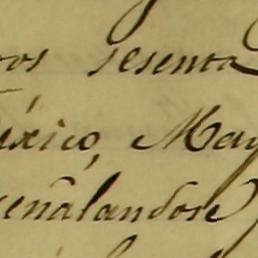 os sesenta
éxico, May
eñalandose